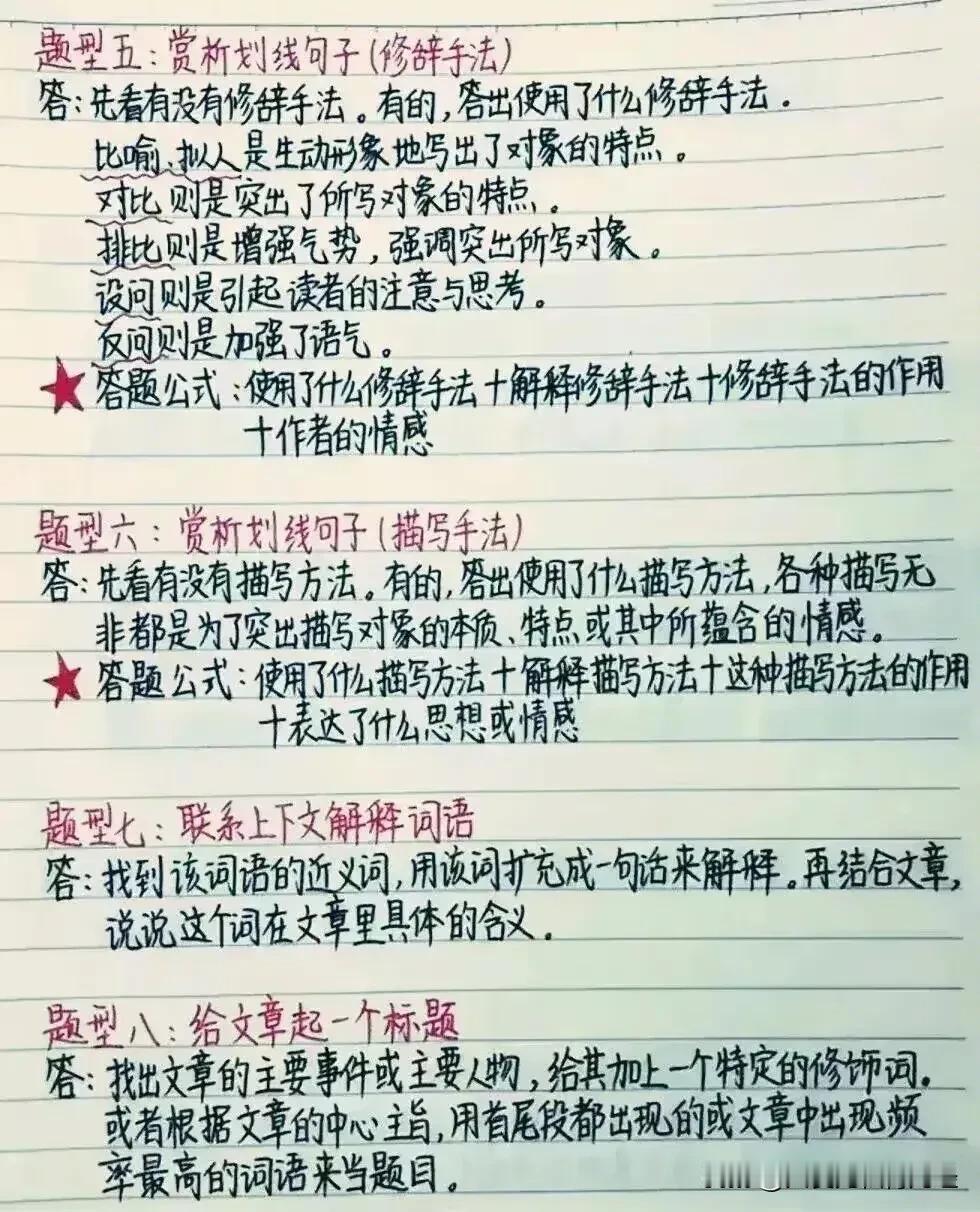 题型五：赏析划线句子(修辞手法)
答：先看有没有修辞手法。有的，答出使用了什么修辞手法．
比喻、拟人是生动形象地写出了对象的特点。
对比则是突出了所写对象的特点。
排比则是增强气势，强调突出所写对象。
设问则是引起读者的注意与思考。
反问则是加强了语气。
★ 答题公式：使用了什么修辞手法十解释修辞手法十修辞手法的作用
十作者的情感
题型六：赏析划线句子(描写手法)
答：先看有没有描写方法。有的，答出使用了什么描写方法，各种描写无
非都是为了突出描写对象的本质、特点或其中所蕴含的情感。
★ 答题公式：使用了什么描写方法十解释描写方法十这种描写方法的作用
十表达了什么思想或情感
题型七：联系上下文解释词语
答：找到该词语的近义词，用该词扩充成一句话来解释。再结合文章，
说说这个词在文章里具体的含义。
题型八：给文章起一个标题
答：找出文章的主要事件或主要人物，给其加上一个特定的修饰词。
或者根据文章的中心主旨，用首尾段都出现的或文章中出现频
率最高的词语来当题目。